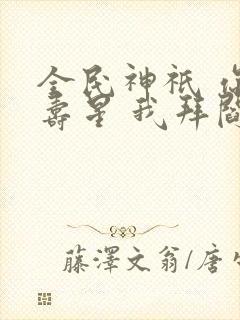 全民神祇 你
寿星 我拜阎
藤澤文翁/唐